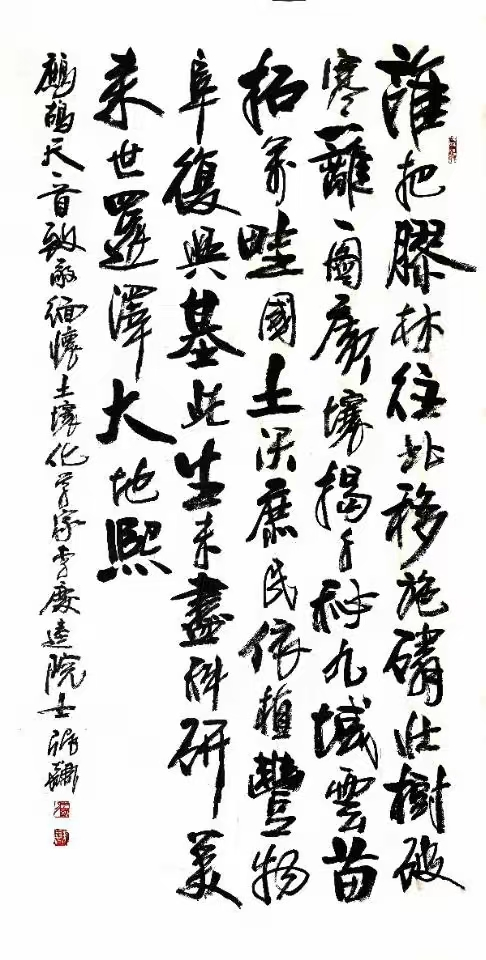 誰把膠林往北移施磷壯樹破
寒離圖廣壤揭千秘九域雲苗
拓萬畦國土沃庶民依植豐物
阜復興基此生未盡科研美
來世還澤大地熙
鷓鴣天一首致敬緬懷土壤化學家李慶逵院士